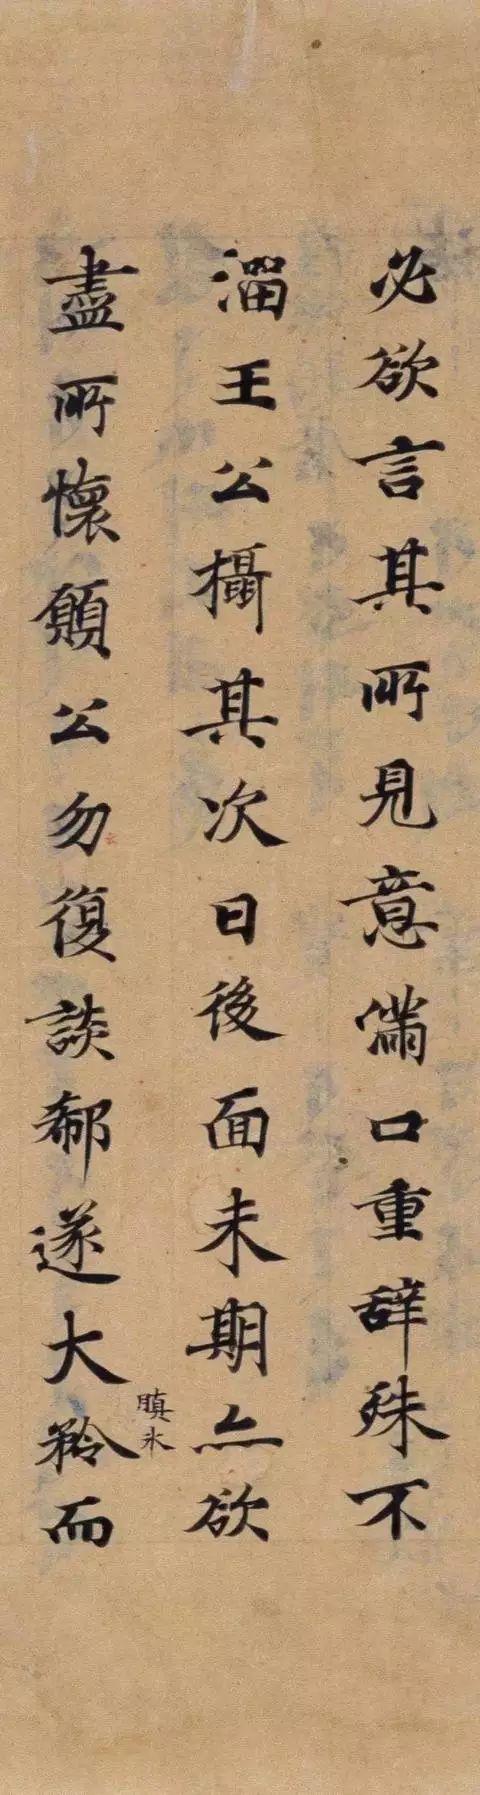 必欲言其所見意滿口重辞殊不
溜王公攝其次曰後面未期亦欲
盡所懷願公勿復談郗遂大矜而
瞋氷